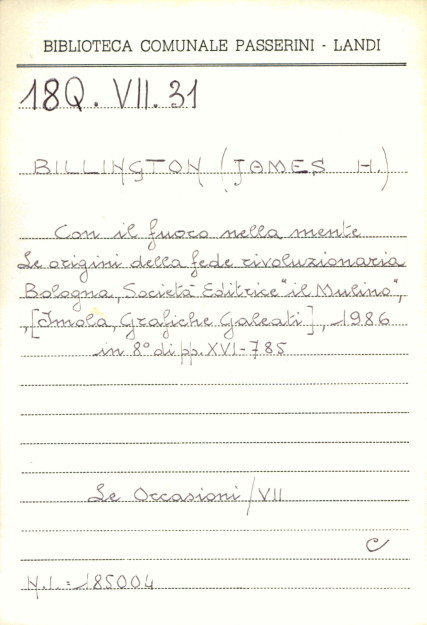 BIBLIOTECA COMUNALE PASSERINI - LANDI
18Q. VII. 31
BILLINGTON (JAMES H.)
Con il fuoco nella mente
Le origini della fede rivoluzionaria
Bologna, Società Editrice "il Mulino",
,[Imola, Grafiche Galeati], 1986
in 8° di pp. XVI-785
Le Occasioni/VII
C
N.I.: 185004